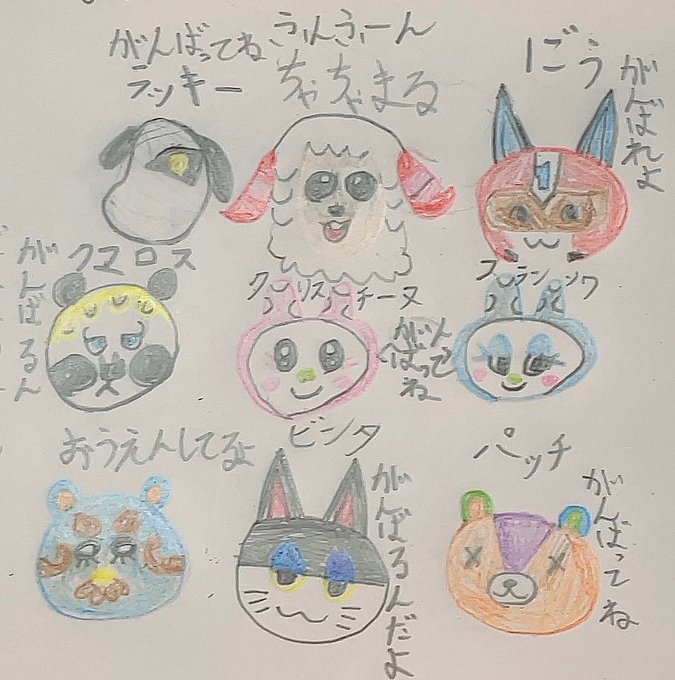 がんばってね
うんうーん
ラッキー
ちゃちゃまる
ごう
がんばれよ
クマロス
がんばるん
クリスチーヌ
がんばってね
フランソワ
おうえんしてるよ
ビンタ
がんばるんだよ
パッチ
がんばってね